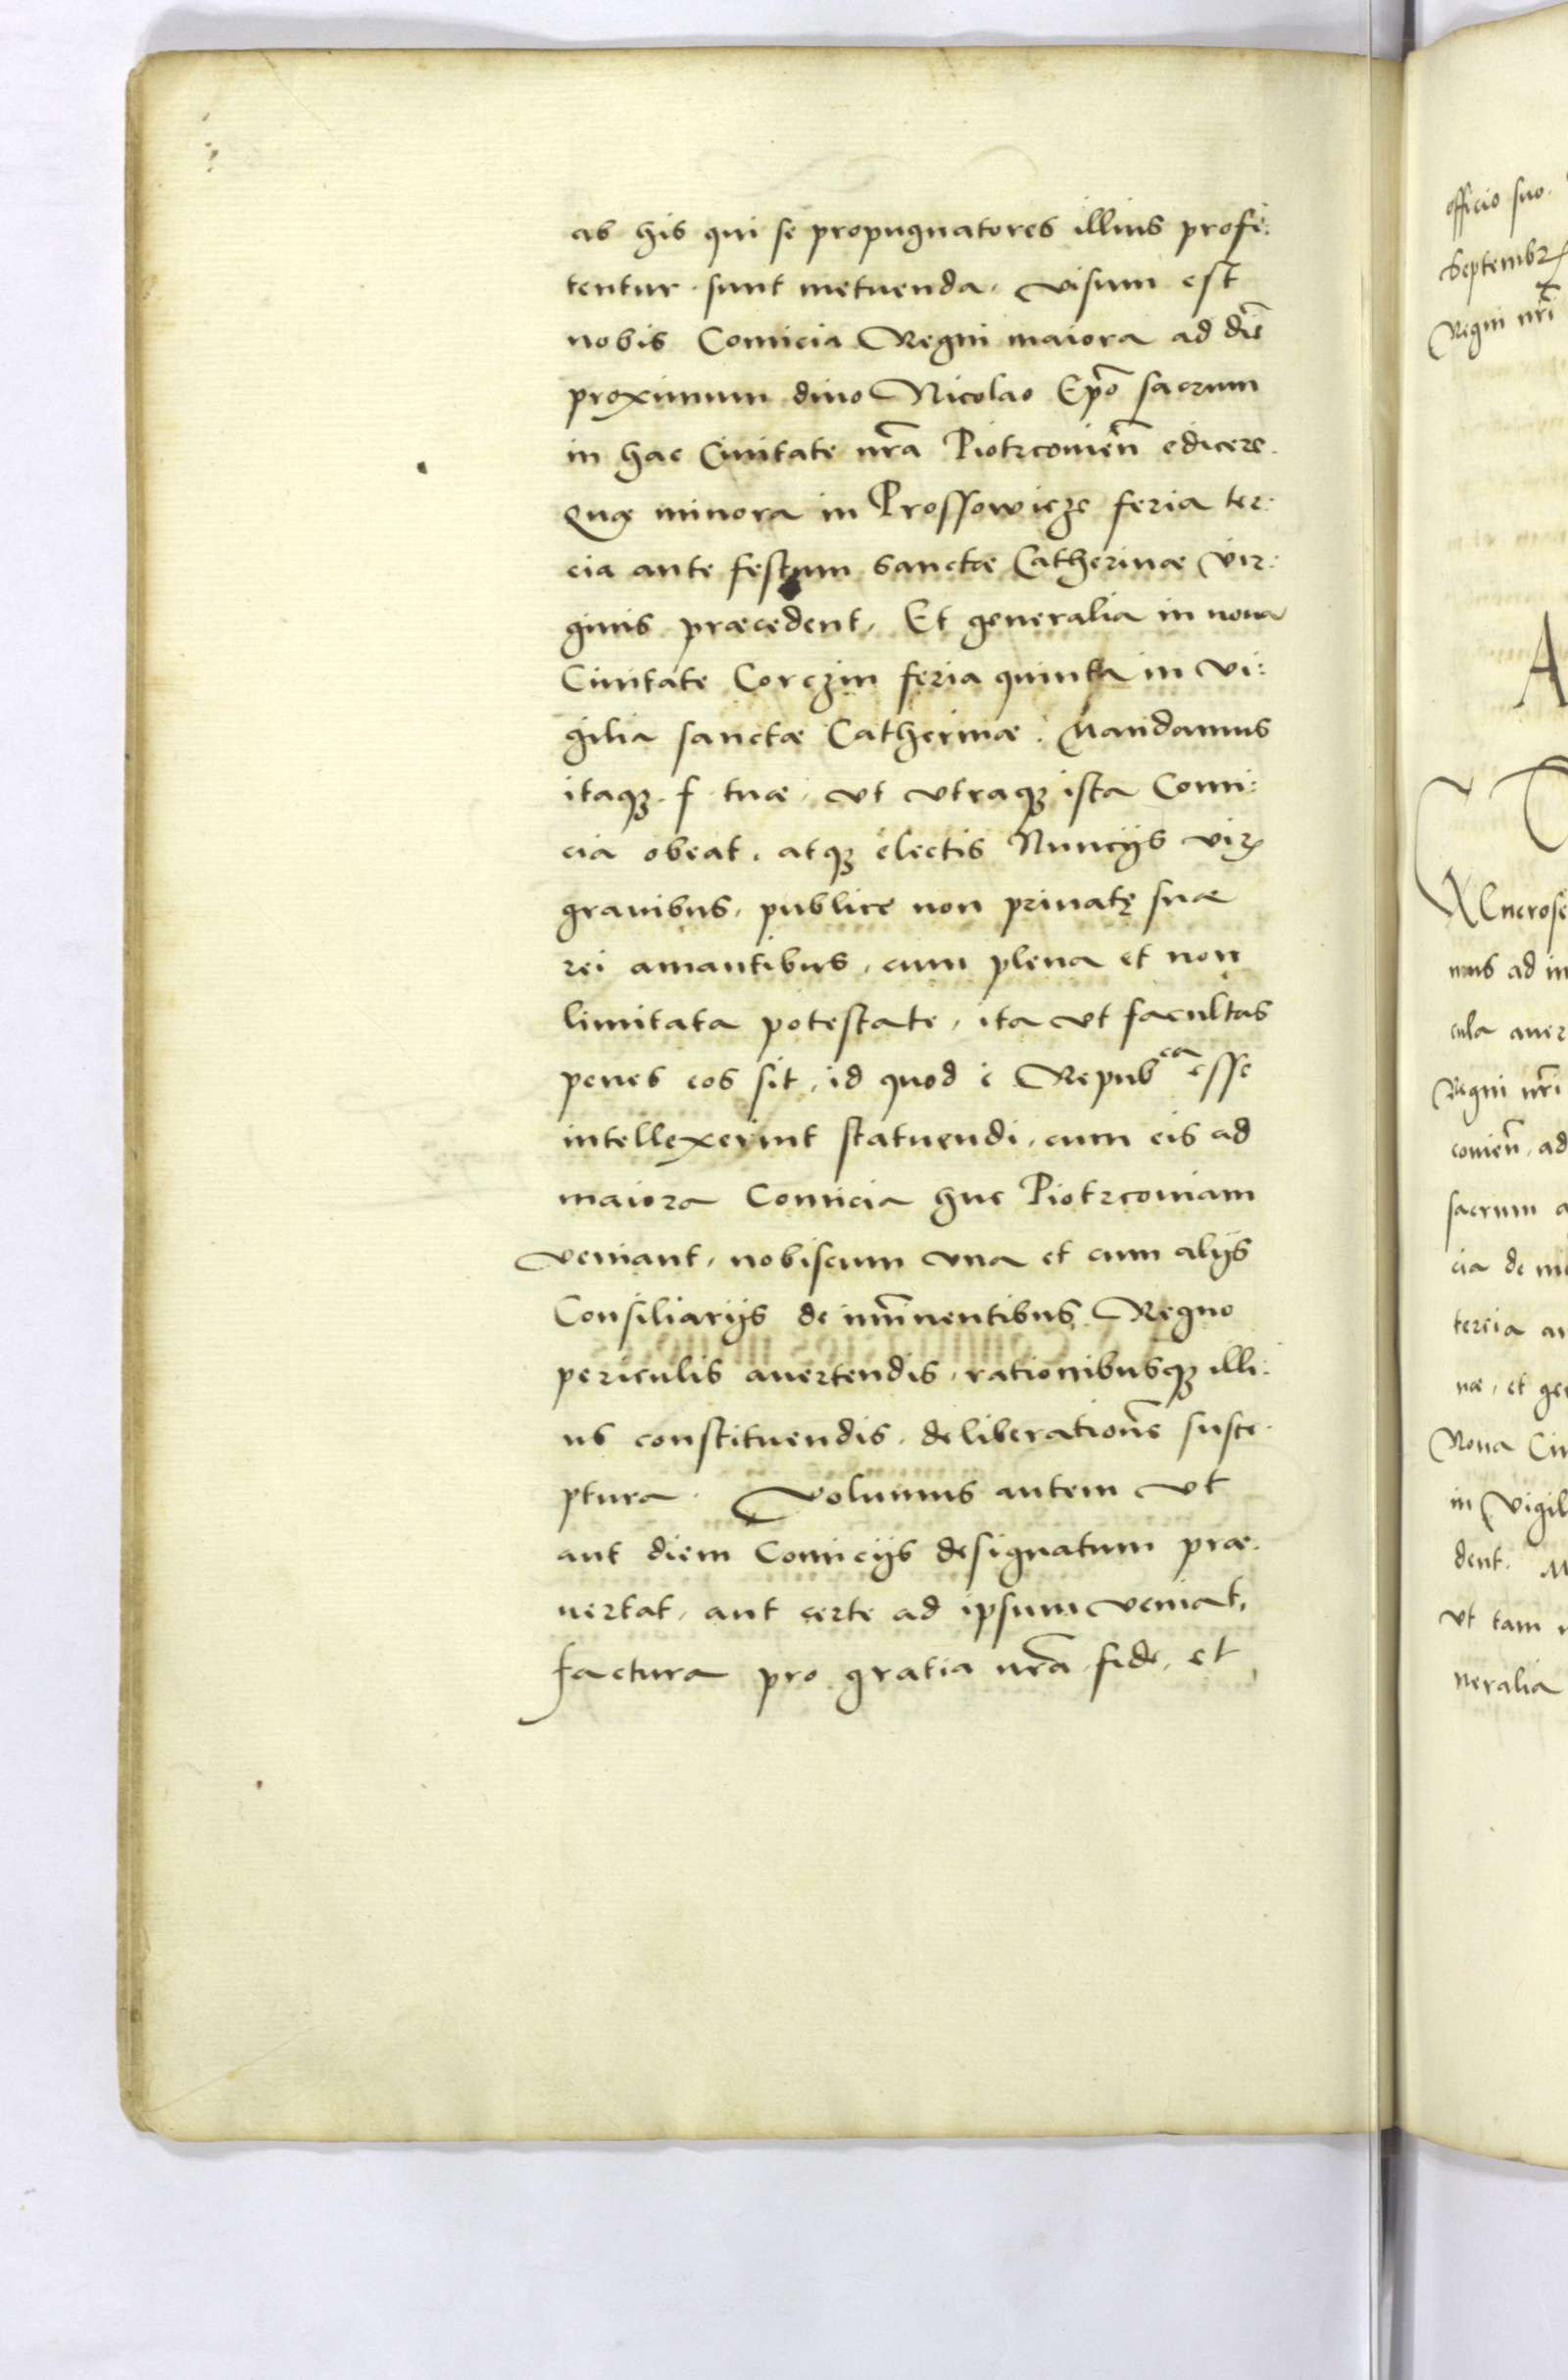 ab his qui se propugnatores illius profi:
tentur sunt metuenda. visum est
nobis Comicia Regni maiora ad diē
proximum diuo Nicolao Ep̃o sacrum
in hac Ciuitate nr̃a Piotrcouieñ edicere.
Quę minora in Prossowicze feria ter:
cia ante festum sanctæ Catherinæ Vir:
ginis præcedent, Et generalia in noua
Ciuitate Corczin feria quinta in vi:
gilia sanctæ Catherinæ. Mandamus
itaqꝫ f tuæ, vt vtraqꝫ ista Comi:
cia obeat, atqꝫ electis Nuncijs viris
grauibus, publice non priuatę suæ
rei amantibus, cum plena et non
limitata potestate, ita vt facultas
penes eos sit, id quod è Repubca esse
intellexerint statuendi, cum eis ad
maiora Comicia huc Piotrcouiam
veniant, nobiscum vna et cum alijs
Consiliarijs de im̃inentibus Regno
periculis auertendis, rationibusqꝫ illi:
us constituendis, deliberationẽ susce
ptura. Volumus autem vt
aut diem Comicijs designatum præ
uertat, aut certe ad ipsum veniat,
factura pro gratia nr̃a, fide, et
officio suo.
Septembrꝭ
Regni nr̃i
A
mus ad in
cula auer
Regni nr̃i
couieñ, ad
sacrum a
cia de mi
tercia an
næ, et ge
Noua Ciu
in Vigil
dent. M
vt tam
neralia